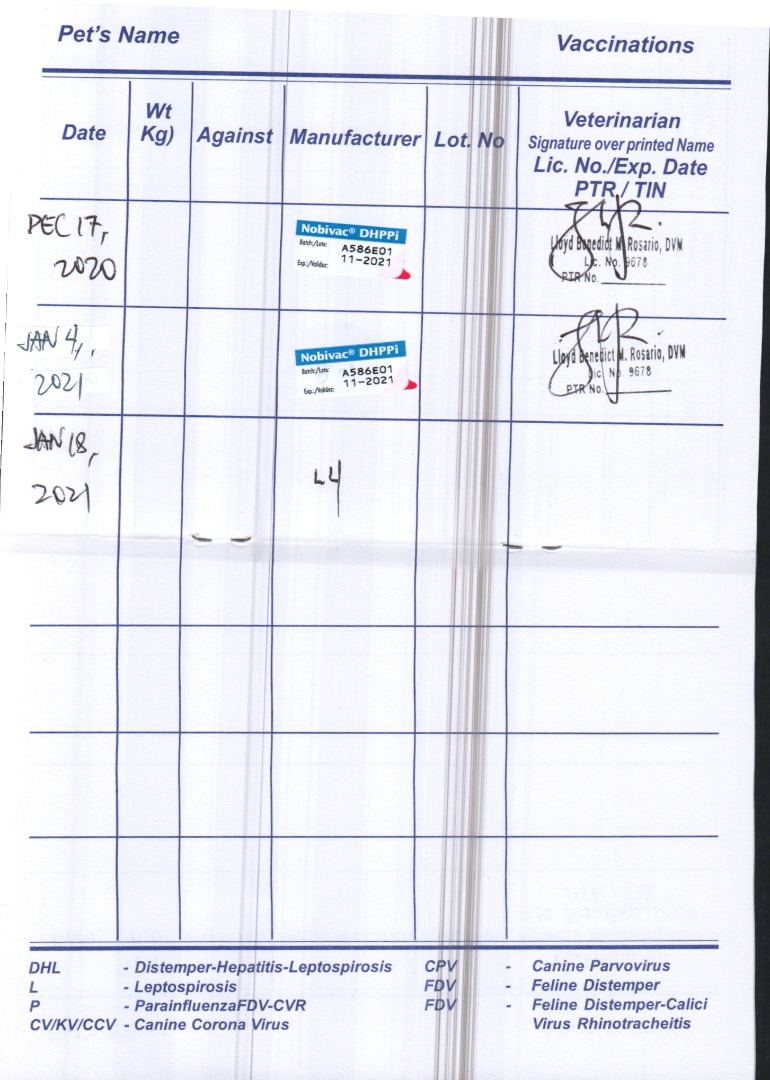 Pet's Name Vaccinations
Date Wt Kg) Against Manufacturer Lot. No Veterinarian
Signature over printed Name
Lic. No./Exp. Date
PTR / TIN
DEC 17,
2020
Nobivac® DHPPi
Batch:/Lote: A586E01
Exp.:/Validez: 11-2021
Lloyd Benedict M. Rosario, DVM
Lic. No. 9678
PTR No.
JAN 4,
2021
Nobivac® DHPPi
Batch:/Lote: A586E01
Exp.:/Validez: 11-2021
Lloyd Benedict M. Rosario, DVM
Lic. No. 9678
PTR No.
JAN 18,
2021
L4
DHL - Distemper-Hepatitis-Leptospirosis CPV - Canine Parvovirus
L - Leptospirosis FDV - Feline Distemper
P - ParainfluenzaFDV-CVR FDV - Feline Distemper-Calici
CV/KV/CCV - Canine Corona Virus Virus Rhinotracheitis